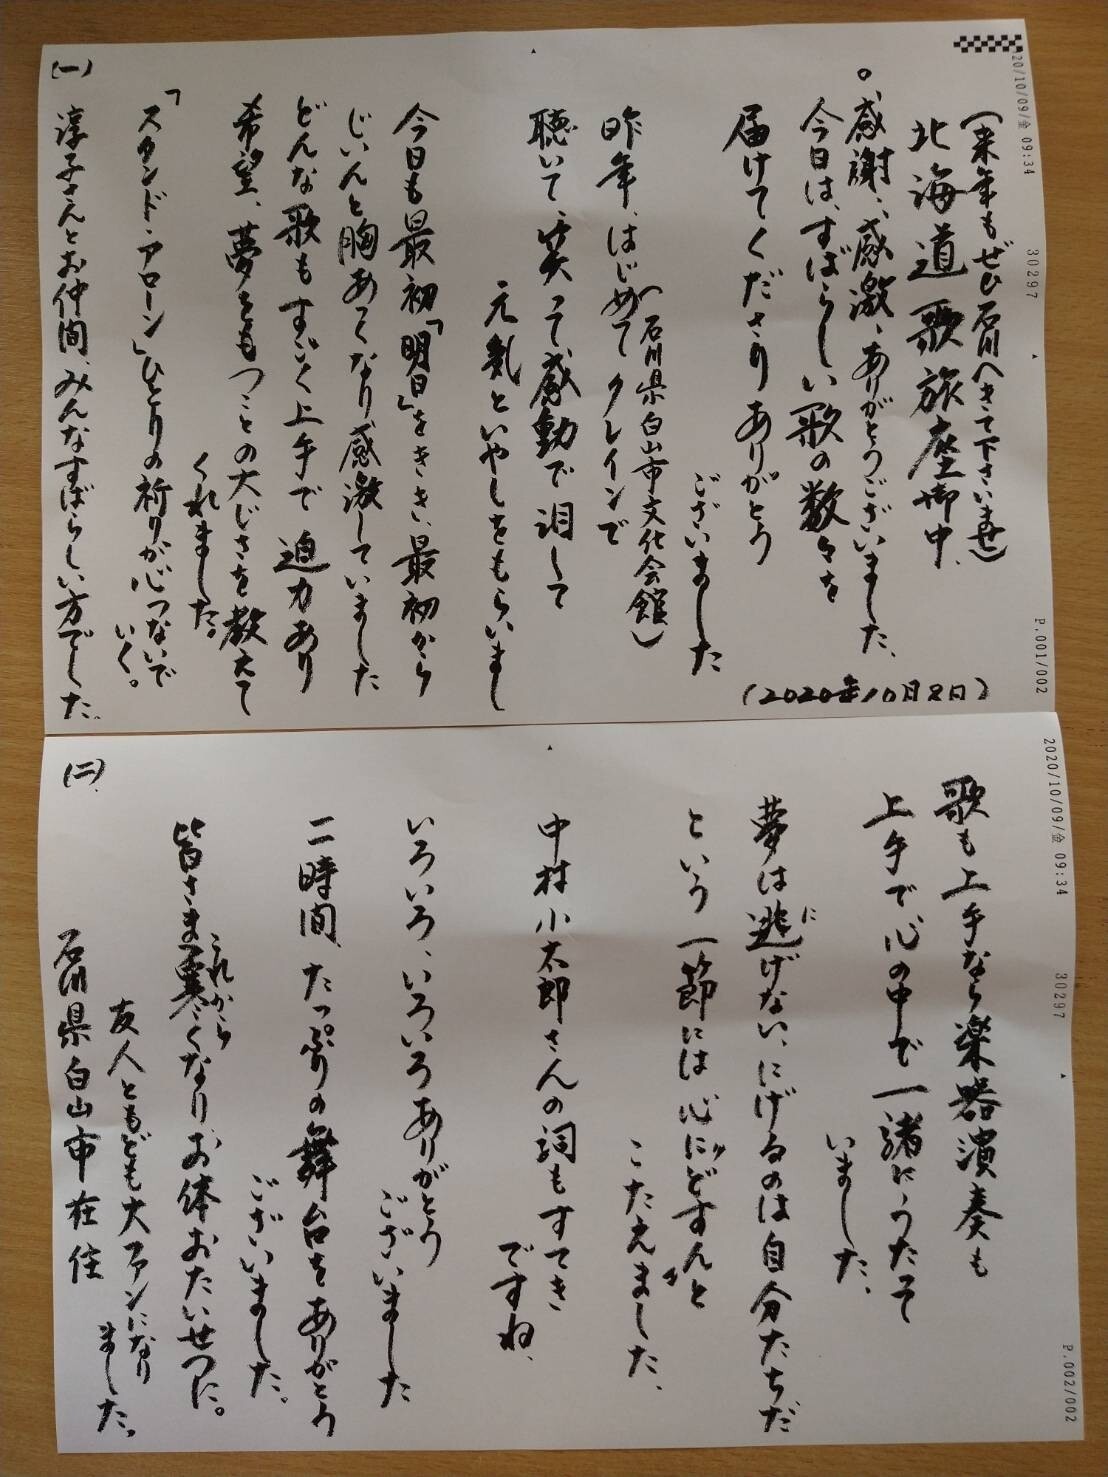 2020/10/09/金 09:34
30297
P.001/002
(来年もぜひ石川へきて下さいませ)
北海道歌旅座御中、
(2020年10月8日)
。感謝、感激、ありがとうございました、
今日は、すばらしい歌の数々を
届けてくださりありがとう
ございました
(石川県白山市文化会館)
昨年、はじめてクレインで
聴いて、笑って、感動で泪して
元氣といやしをもらいまし
今日も最初「明日」をきき、最初から
じいんと胸あつくなり感激していました
どんな歌もすごく上手で迫力あり
希望、夢をもつことの大じさを教えて
くれました。
「スタンド・アローン」ひとりの祈りが心つないで
いく。
淳子さんとお仲間、みんなすばらしい方でした。
(一)
2020/10/09/金 09:34
30297
P.002/002
歌も上手なら楽器演奏も
上手で心の中で一緒にうたって
いました、
夢は逃げない、にげるのは自分たちだ
に
という一節には心に〝どすん〟と
こたえました、
中村小太郎さんの詞もすてき
ですね、
いろいろ、いろいろありがとう
ございました
二時間、たっぷりの舞台をありがとう
ございました。
これから
皆さま寒くなりお体おたいせつに。
友人ともども大ファンになり
ました。
石川県白山市在住
(二)